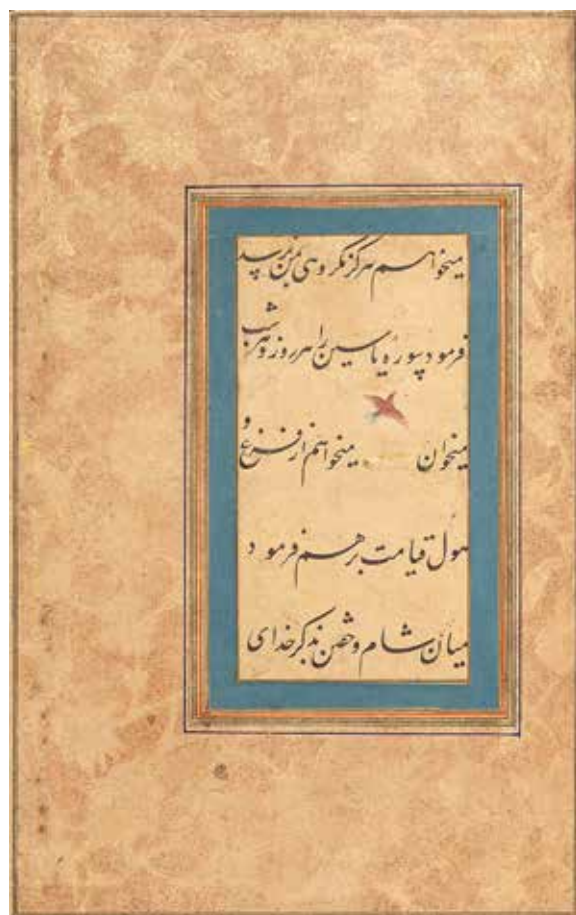 میخواهم هرگز مکروهی بمن نرسد
فرمود سوره یاسین را هر روز و هر شب
میخوان میخواهم از فزع و
هول قیامت برهم فرمود
میان شام و خفتن بذکر خدای